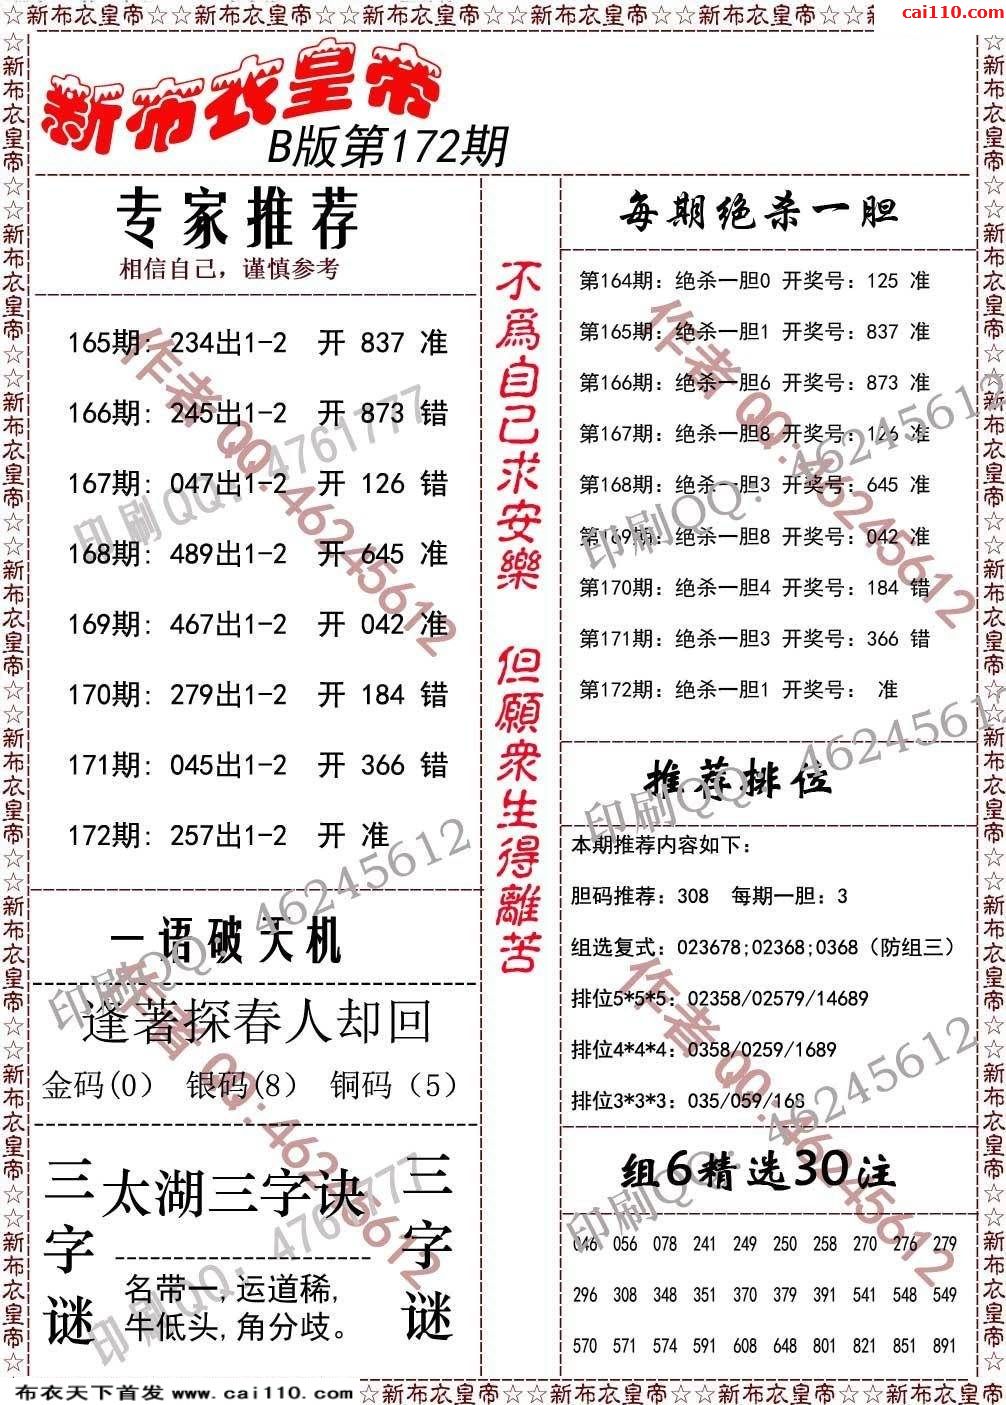 ☆新布衣皇帝☆新布衣皇帝☆新布衣皇帝☆新布衣皇帝☆新布衣皇帝☆新布衣皇帝☆新
cai110.com
新布衣皇帝
B版第172期
专家推荐
相信自己，谨慎参考
165期: 234出1-2 开 837 准
166期: 245出1-2 开 873 错
167期: 047出1-2 开 126 错
168期: 489出1-2 开 645 准
169期: 467出1-2 开 042 准
170期: 279出1-2 开 184 错
171期: 045出1-2 开 366 错
172期: 257出1-2 开 准
一语破天机
逢著探春人却回
金码(0) 银码(8) 铜码（5）
三字谜
太湖三字诀
名带一,运道稀,
牛低头,角分歧。
三字谜
不爲自己求安樂 但願衆生得離苦
每期绝杀一胆
第164期: 绝杀一胆0 开奖号: 125 准
第165期: 绝杀一胆1 开奖号: 837 准
第166期: 绝杀一胆6 开奖号: 873 准
第167期: 绝杀一胆8 开奖号: 126 准
第168期: 绝杀一胆3 开奖号: 645 准
第169期: 绝杀一胆8 开奖号: 042 准
第170期: 绝杀一胆4 开奖号: 184 错
第171期: 绝杀一胆3 开奖号: 366 错
第172期: 绝杀一胆1 开奖号: 准
推荐排位
本期推荐内容如下:
胆码推荐: 308 每期一胆: 3
组选复式: 023678;02368;0368（防组三）
排位5*5*5: 02358/02579/14689
排位4*4*4: 0358/0259/1689
排位3*3*3: 035/059/168
组6精选30注
046 056 078 241 249 250 258 270 276 279
296 308 348 351 370 379 391 541 548 549
570 571 574 591 608 648 801 821 851 891
作者QQ:46245612
印刷QQ: 4761777
作者QQ:46245612
印刷QQ: 46245612
印刷QQ: 46245612
印刷QQ: 46245612
作者QQ:46245612
印刷QQ: 4761777
作者QQ:46245612
印刷QQ: 46245612
布衣天下首发 www.cai110.com
☆新布衣皇帝☆新布衣皇帝☆新布衣皇帝☆新布衣皇帝☆